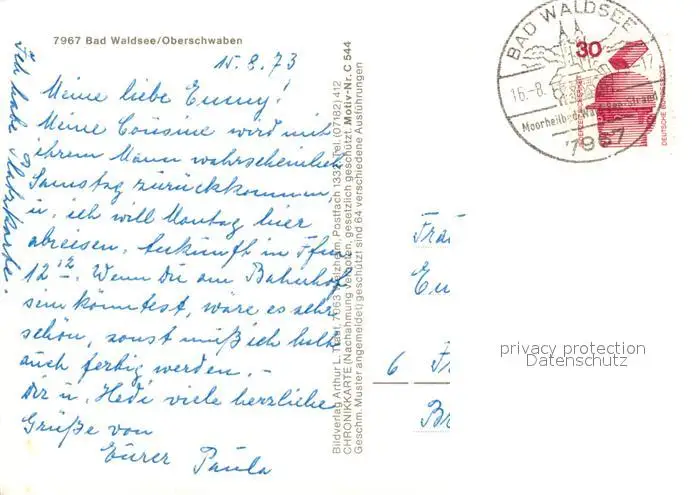 7967 Bad Waldsee/Oberschwaben
15.8.73
Meine liebe Emmy!
Meine Cousine wird mit
ihrem Mann wahrscheinlich
Samstag zurückkommen
u. ich will Montag hier
abreisen. Ankunft in Ffm
12 12. Wenn Du am Bahnhof
sein könntest, wäre es sehr
schön, sonst muß ich halt
auch fertig werden. -
Dir u. Hedi viele herzliche
Grüße von
Eurer Paula
Ich habe Platzkarte.
Bildverlag Arthur L. 7063 Welzheim, Postfach 1332, Tel. (07182) 412
CHRONIKKARTE (Nachahmung verboten, gesetzlich geschützt. Motiv-Nr. C 544
Geschm. Muster angemeldet) geschützt sind 64 verschiedene Ausführungen
BAD WALDSEE
16.-8.
-17
Moorheilbad
7967
30
DEUTSCHE BUNDESPOST
Frau
6 Fr
privacy protection
Datenschutz